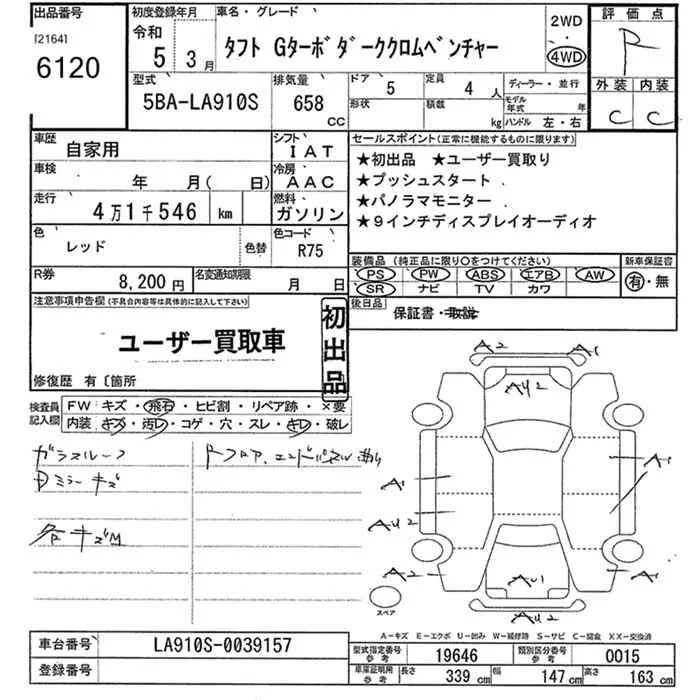 出品番号 初度登録年月 車名・グレード 2WD 評価点
[2164] 令和 ・
6120 5 3月 タフト Gターボダーククロムベンチャー 4WD R
型式 排気量 ドア 5 定員 4人 ディーラー・並行 外装 内装
5BA-LA910S 658 CC 形状 積載 kg モデル年式 年 C C
ハンドル 左・右
車歴 自家用 シフト IAT セールスポイント(正常に機能するものに限ります)
車検 年 月( 日) 冷房 AAC ★初出品 ★ユーザー買取り
★プッシュスタート
走行 4万1千546 km 燃料 ガソリン ★パノラマモニター
★9インチディスプレイオーディオ
色 レッド 色替 色コード R75
装備品(純正品に限り○をつけてください) 新車保証書
R券 8,200円 名変通知期限 月 日 PS PW ABS エアB AW 有・無
SR ナビ TV カワ
注意事項申告欄(不具合内容等は具体的に記入して下さい) 後日品 保証書・取説
ユーザー買取車 初出品
修復歴 有〔箇所
検査員記入欄 FW キズ・飛石・ヒビ割・リペア跡・×要
内装 キズ・汚レ・コゲ・穴・スレ・キレ・破レ
ガラスルーフ Rフロア、エンドパネル曲り
Dミラーキズ
各キズM
A2 A1
AU2
A1 A1
AU2
A2 AU1 A2
AU2
スペア
A-キズ E-エクボ U-凹み W-補修跡 S-サビ C-腐食 XX-交換済
車台番号 LA910S-0039157 型式指定番号 参考 19646 類別区分番号 参考 0015
登録番号 車庫証明用 参考 長さ 339 cm 幅 147 cm 高さ 163 cm